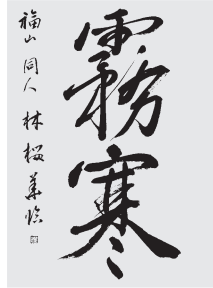 霧寒
福山 同人 林桜華臨